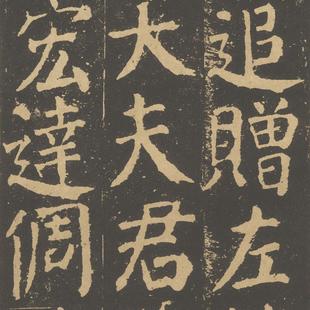 追贈左
大夫君
宏達倜